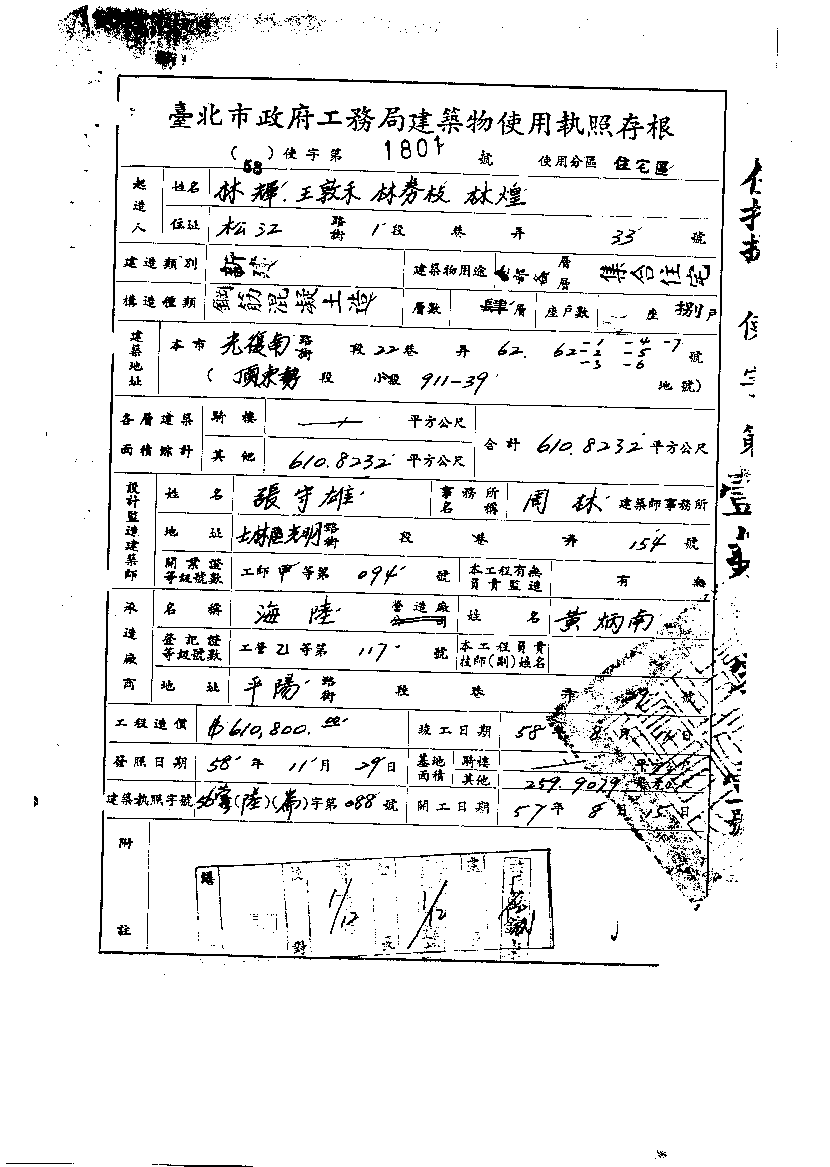 臺北市政府工務局建築物使用執照存根
(58)使字第 1801 號 使用分區 住宅區
起造人 姓名 林輝.王敦禾 林劵枝 林煌
住址 松江 路街 1段 巷 弄 33 號
建造類別 新築 建築物用途 層層 集合住宅
構造種類 鋼筋混凝土造 層數 肆層 座戶數 一座 捌戶
建築地址 本市 光復南路街 段22巷 弄 62. 62-1 -2 -3 -4 -5 -6 -7 號
(頂東勢 段 小段 911-39 地號)
各層建築面積綜計 騎樓 平方公尺 合計 610.8232 平方公尺
其他 610.8232 平方公尺
設計監造建築師 姓名 張守雄 事務所名稱 周林 建築師事務所
地址 士林區光明路街 段 巷 弄 154 號
開業證等級號數 工師甲等第 094 號 本工程有無負責監造 有 無
承造廠商 名稱 海陸 營造廠公司 姓名 黃炳南
登記證等級號數 工營乙等第 117 號 本工程負責技師(副)姓名
地址 平陽 路街 段 巷 弄 號
工程造價 610,800.00 竣工日期 58年 8月 日
發照日期 58年 11月 29日 基地面積 騎樓 平方公尺
其他 259.9079 平方公尺
建築執照字號 字第088號 開工日期 57年 8月 15日
附註
1/12 1/12
對
使字第壹
號